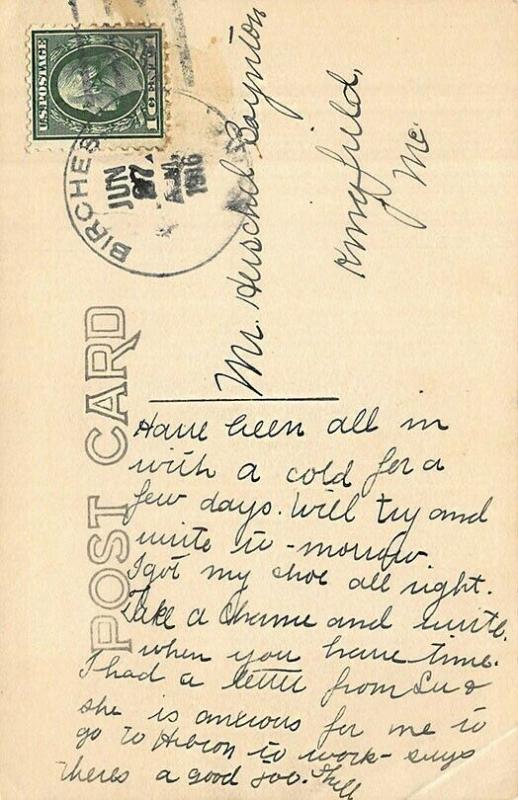 U.S. POSTAGE
1 CENT 1
BIRCHES
JUN
27
A.M.
1916
POST CARD
Mr. Herschel Boynton
Kingfield,
Me.
Have been all in
with a cold for a
few days. Will try and
write to-morrow.
I got my shoe all right.
Take a chance and write
when you have time.
I had a letter from Lu &
she is anxious for me to
go to Hebron to work - says
theres a good job.